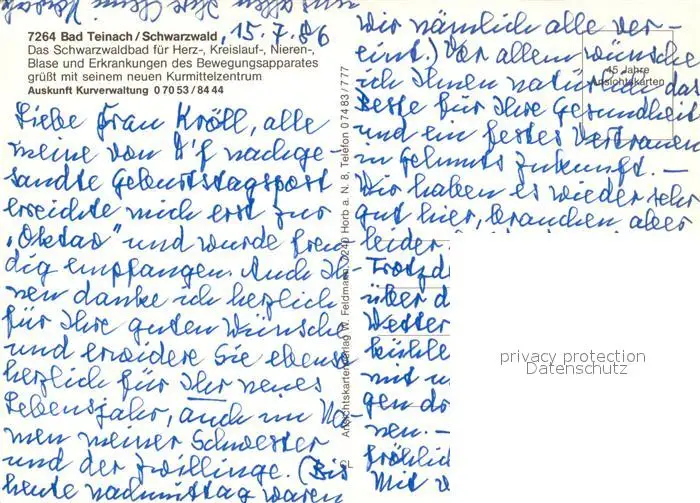 15.7.86
7264 Bad Teinach/Schwarzwald
Das Schwarzwaldbad für Herz-, Kreislauf-, Nieren-,
Blase und Erkrankungen des Bewegungsapparates
grüßt mit seinem neuen Kurmittelzentrum
Auskunft Kurverwaltung 0 70 53 / 84 44
Liebe Frau Kröll, alle
meine von D'f nachge-
sandte Geburtstagspost
erreichte mich erst zur
„Oktav" und wurde freu-
dig empfangen. Auch Ih-
nen danke ich herzlich
für Ihre guten Wünsche
und erwidere Sie ebenso
herzlich für Ihr neues
Lebensjahr, auch im Na-
men meiner Schwester
und der Zwillinge. (Bis
heute nachmittag waren
Ansichtskartenverlag W. Feldmann, 7240 Horb a. N. 8, Telefon 0 74 83 / 7 77
45 Jahre
Ansichtskarten
wir nämlich alle ver-
eint.) Vor allem wünsche
ich Ihnen natürlich das
Beste für Ihre Gesundheit
und ein festes Vertrauen
in Zukunft. —
Wir haben es wieder sehr
gut hier, brauchen aber
leider
Trotzde
über d
Wetter
kühle
mit u
gen do
nen. —
fröhlich
Mit v
privacy protection
Datenschutz